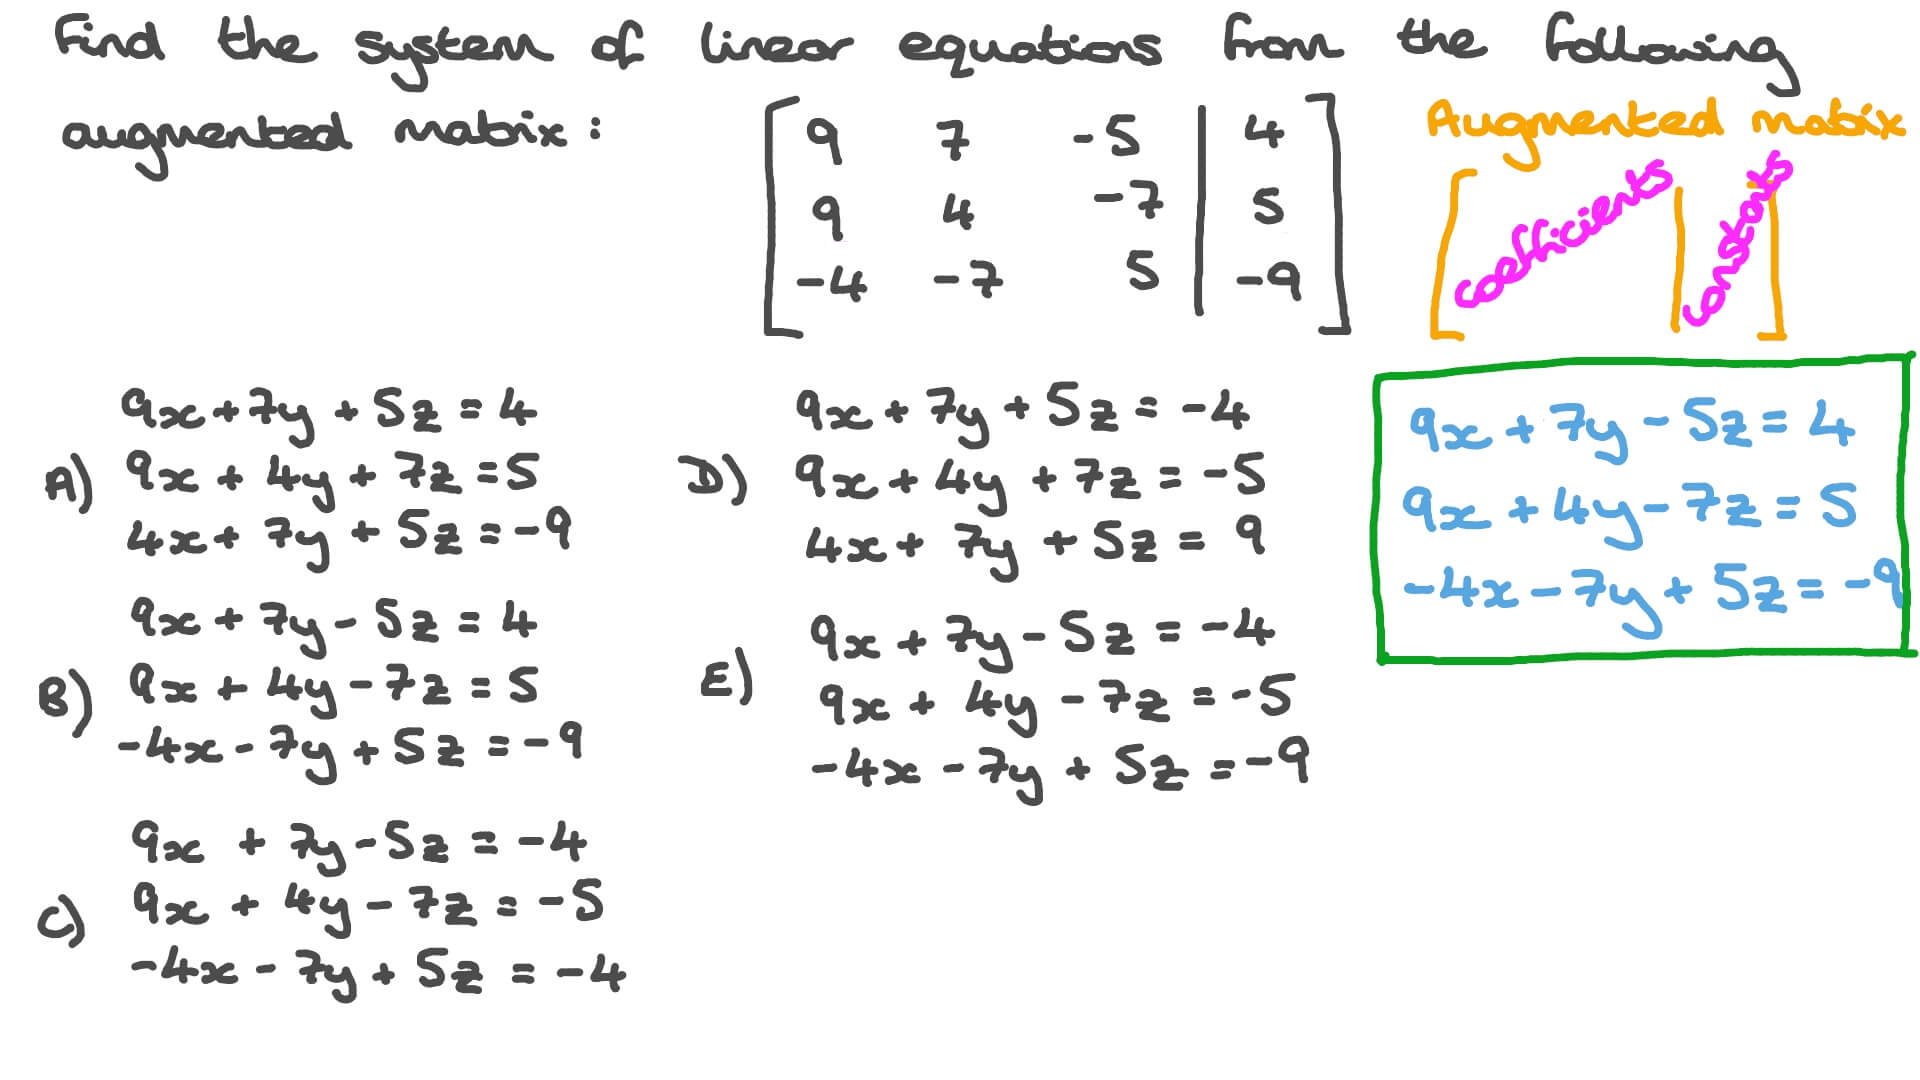 Find the system of linear equations from the following
augmented matrix:
9 7 -5 | 4
9 4 -7 | 5
-4 -7 5 | -9
Augmented matrix
coefficients constants
A)
9x + 7y + 5z = 4
9x + 4y + 7z = 5
4x + 7y + 5z = -9
B)
9x + 7y - 5z = 4
9x + 4y - 7z = 5
-4x - 7y + 5z = -9
C)
9x + 7y - 5z = -4
9x + 4y - 7z = -5
-4x - 7y + 5z = -4
D)
9x + 7y + 5z = -4
9x + 4y + 7z = -5
4x + 7y + 5z = 9
E)
9x + 7y - 5z = -4
9x + 4y - 7z = -5
-4x - 7y + 5z = -9
9x + 7y - 5z = 4
9x + 4y - 7z = 5
-4x - 7y + 5z = -9